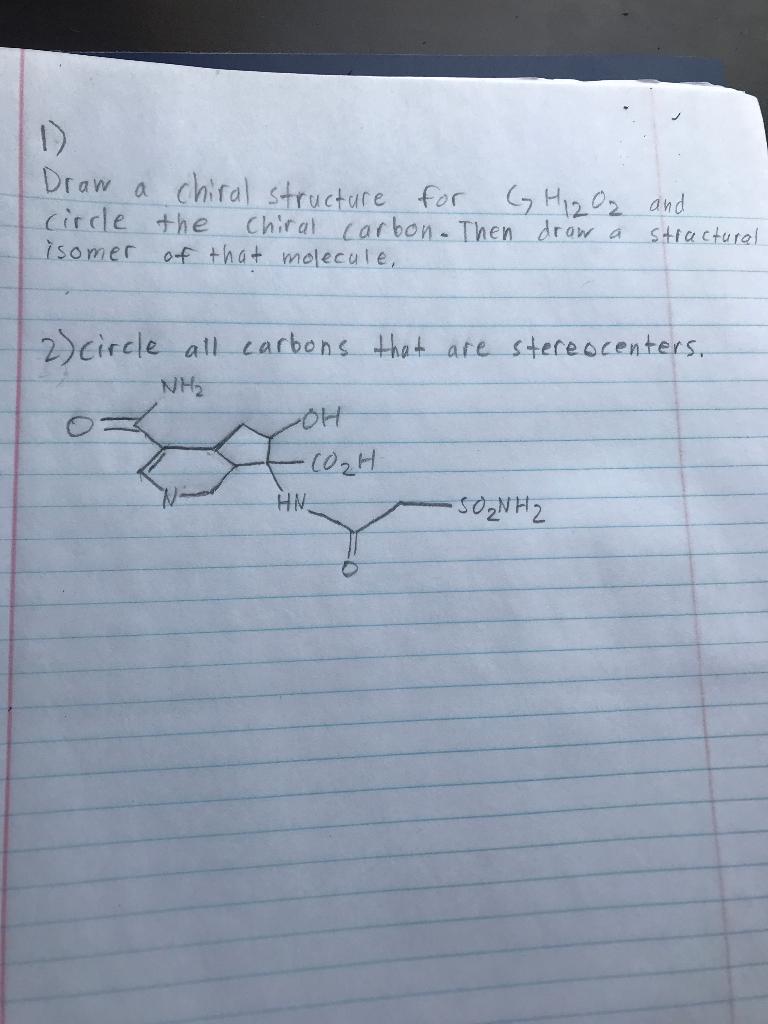 1)
Draw a chiral structure for C7H12O2 and
circle the chiral carbon. Then draw a structural
isomer of that molecule.
2) circle all carbons that are stereocenters.
NH2
O
OH
CO2H
N
HN
SO2NH2
O